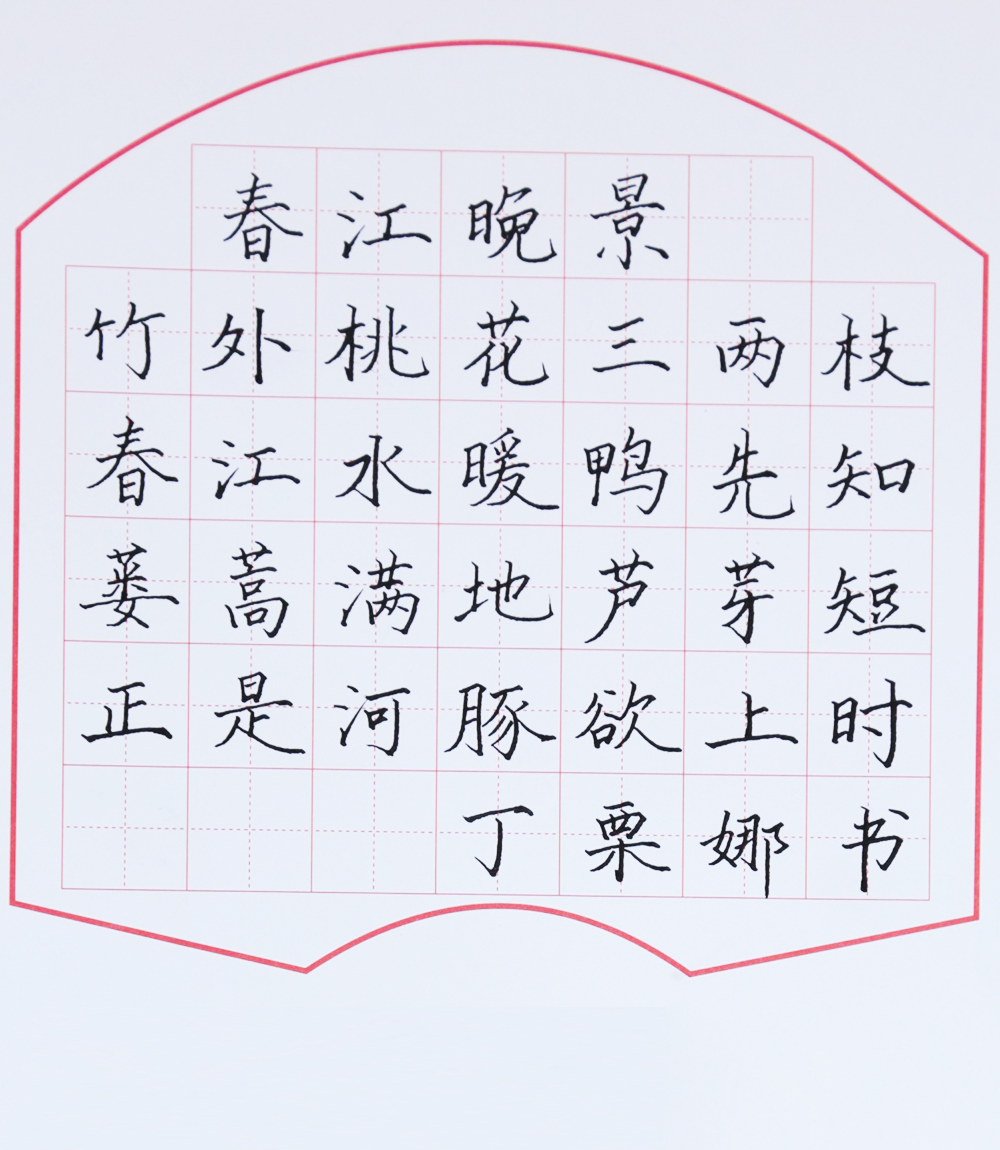 春江晚景
竹外桃花三两枝
春江水暖鸭先知
蒌蒿满地芦芽短
正是河豚欲上时
丁栗娜书